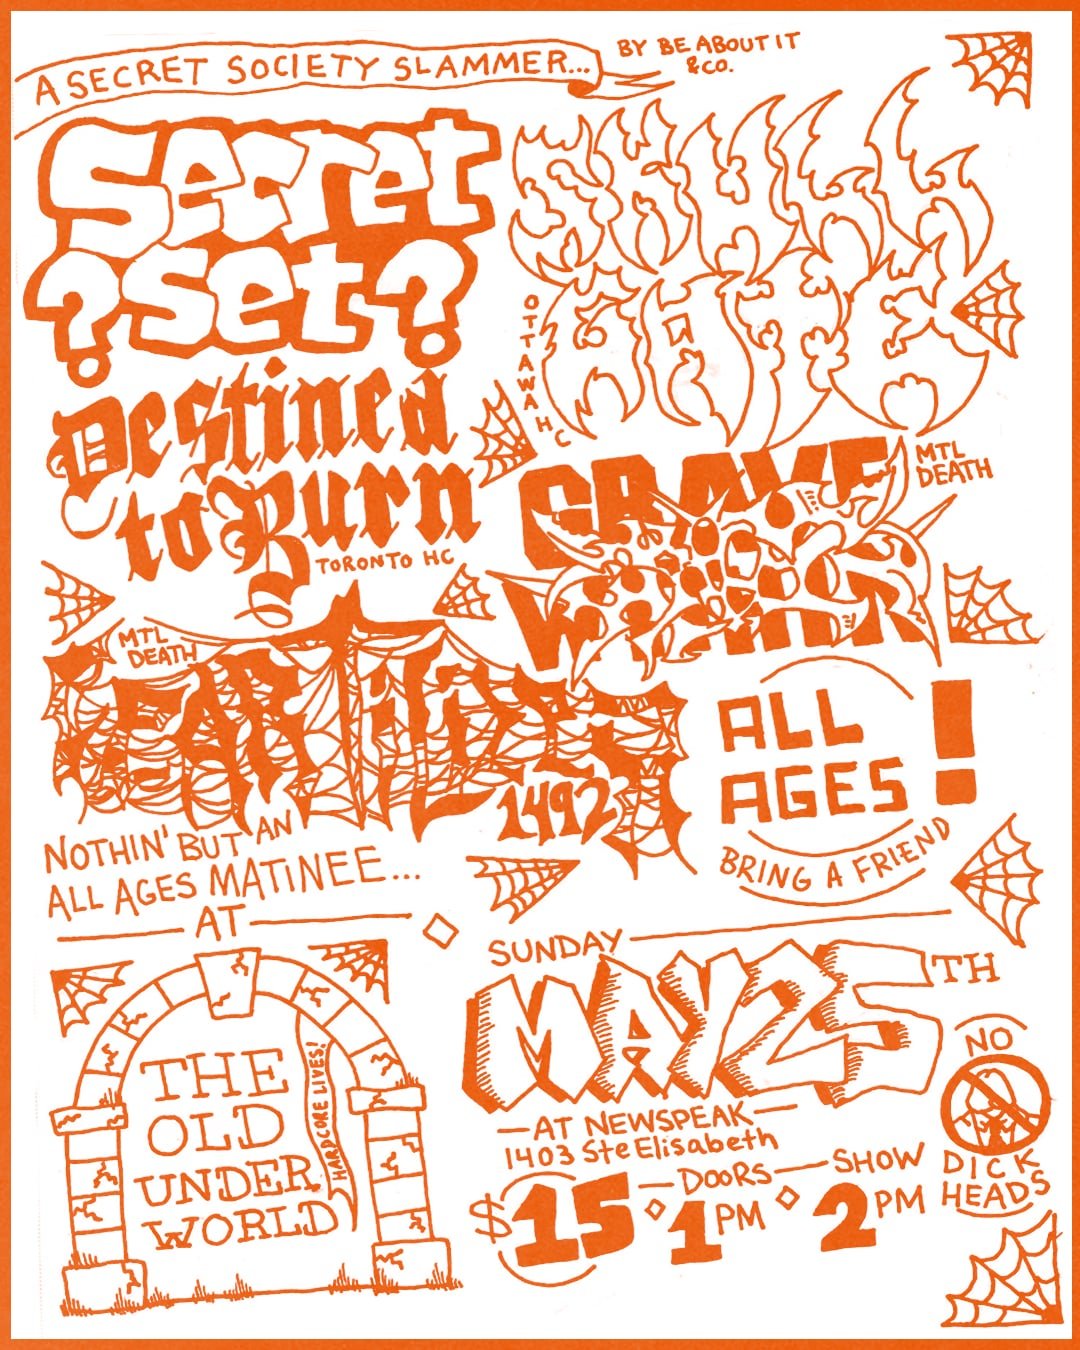 A SECRET SOCIETY SLAMMER...
BY BE ABOUT IT
& CO.
Secret
?Set?
SKULL
OTTAWA HC
Destined
to Burn
TORONTO HC
GRAVE
MTL
DEATH
MTL
DEATH
1492
ALL
AGES!
BRING A FRIEND
NOTHIN' BUT AN
ALL AGES MATINEE...
AT
THE
OLD
UNDER
WORLD
HARDCORE LIVES!
SUNDAY
MAY 25TH
AT NEWSPEAK
1403 Ste Elisabeth
$15
DOORS
1PM
SHOW
2PM
NO
DICK
HEADS